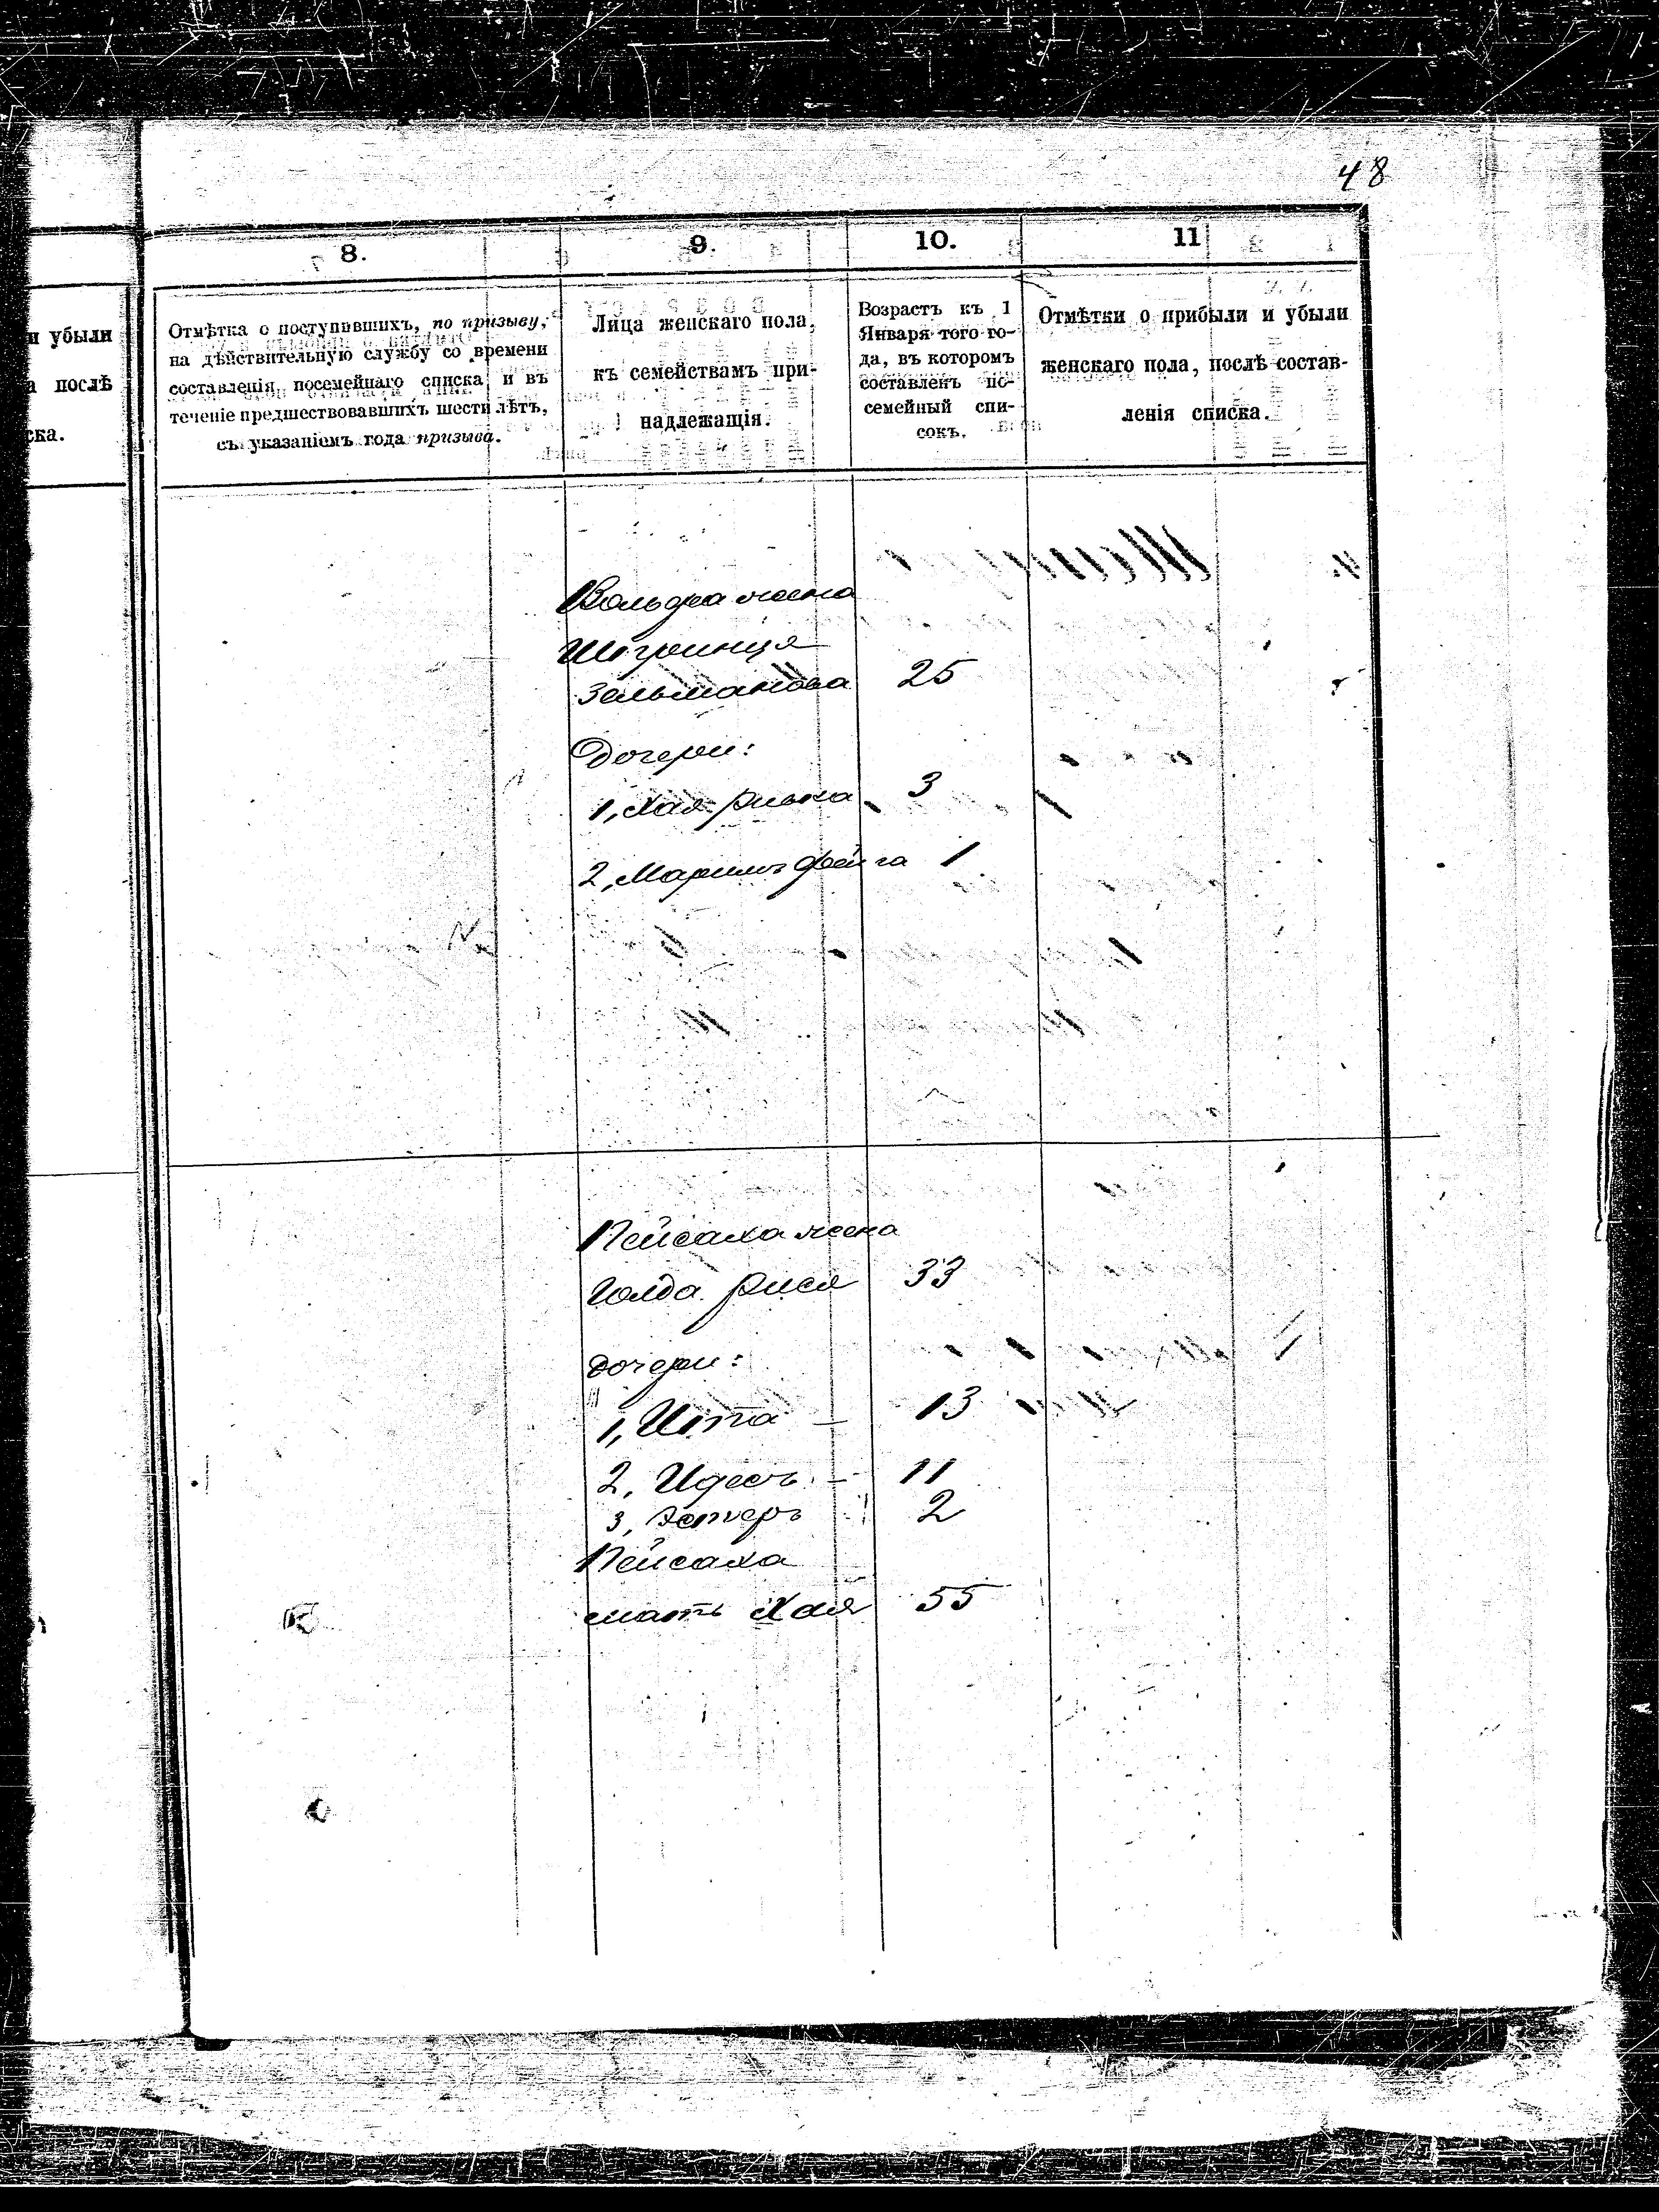 48
и убыли
а послѣ
ска.
8.
9.
10.
11
Отмѣтка о поступившихъ, по призыву,
на дѣйствительную службу со времени
составленія посемейнаго списка и въ
теченіе предшествовавшихъ шести лѣтъ,
съ указаніемъ года призыва.
Лица женскаго пола,
къ семействамъ при-
надлежащія.
Возрастъ къ 1
Января того го-
да, въ которомъ
составленъ по-
семейный спи-
сокъ.
Отмѣтки о прибыли и убыли
женскаго пола, послѣ состав-
ленія списка.
Вольфа жена
Шпринця
Зельманова 25
Дочери:
1, Хая-Ривка 3
2, Марилъ Фейга 1
Пейсаха жена
Голда Рися 33
дочери:
1, Ита — 13
2, Идесъ — 11
3, Эстеръ 2
Пейсаха
мать Хая 55